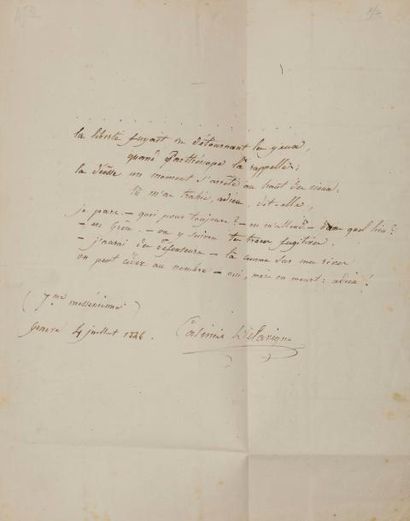 la liberté fuyait en détournant les yeux,
quand Parthénope la rappelle;
la déesse un moment s'arrête au haut des cieux;
tu m'as trahie, adieu, dit-elle,
je pars - quoi pour toujours? - on m'attend - dans quel lieu?
- en Grèce. - on y suivra tes traces fugitives.
- j'aurai des défenseurs - là comme sur mes rives
on peut céder au nombre - oui, mais on meurt: adieu!
(7me messénienne)
Genève 4 juillet 1826.
Casimir Delavigne